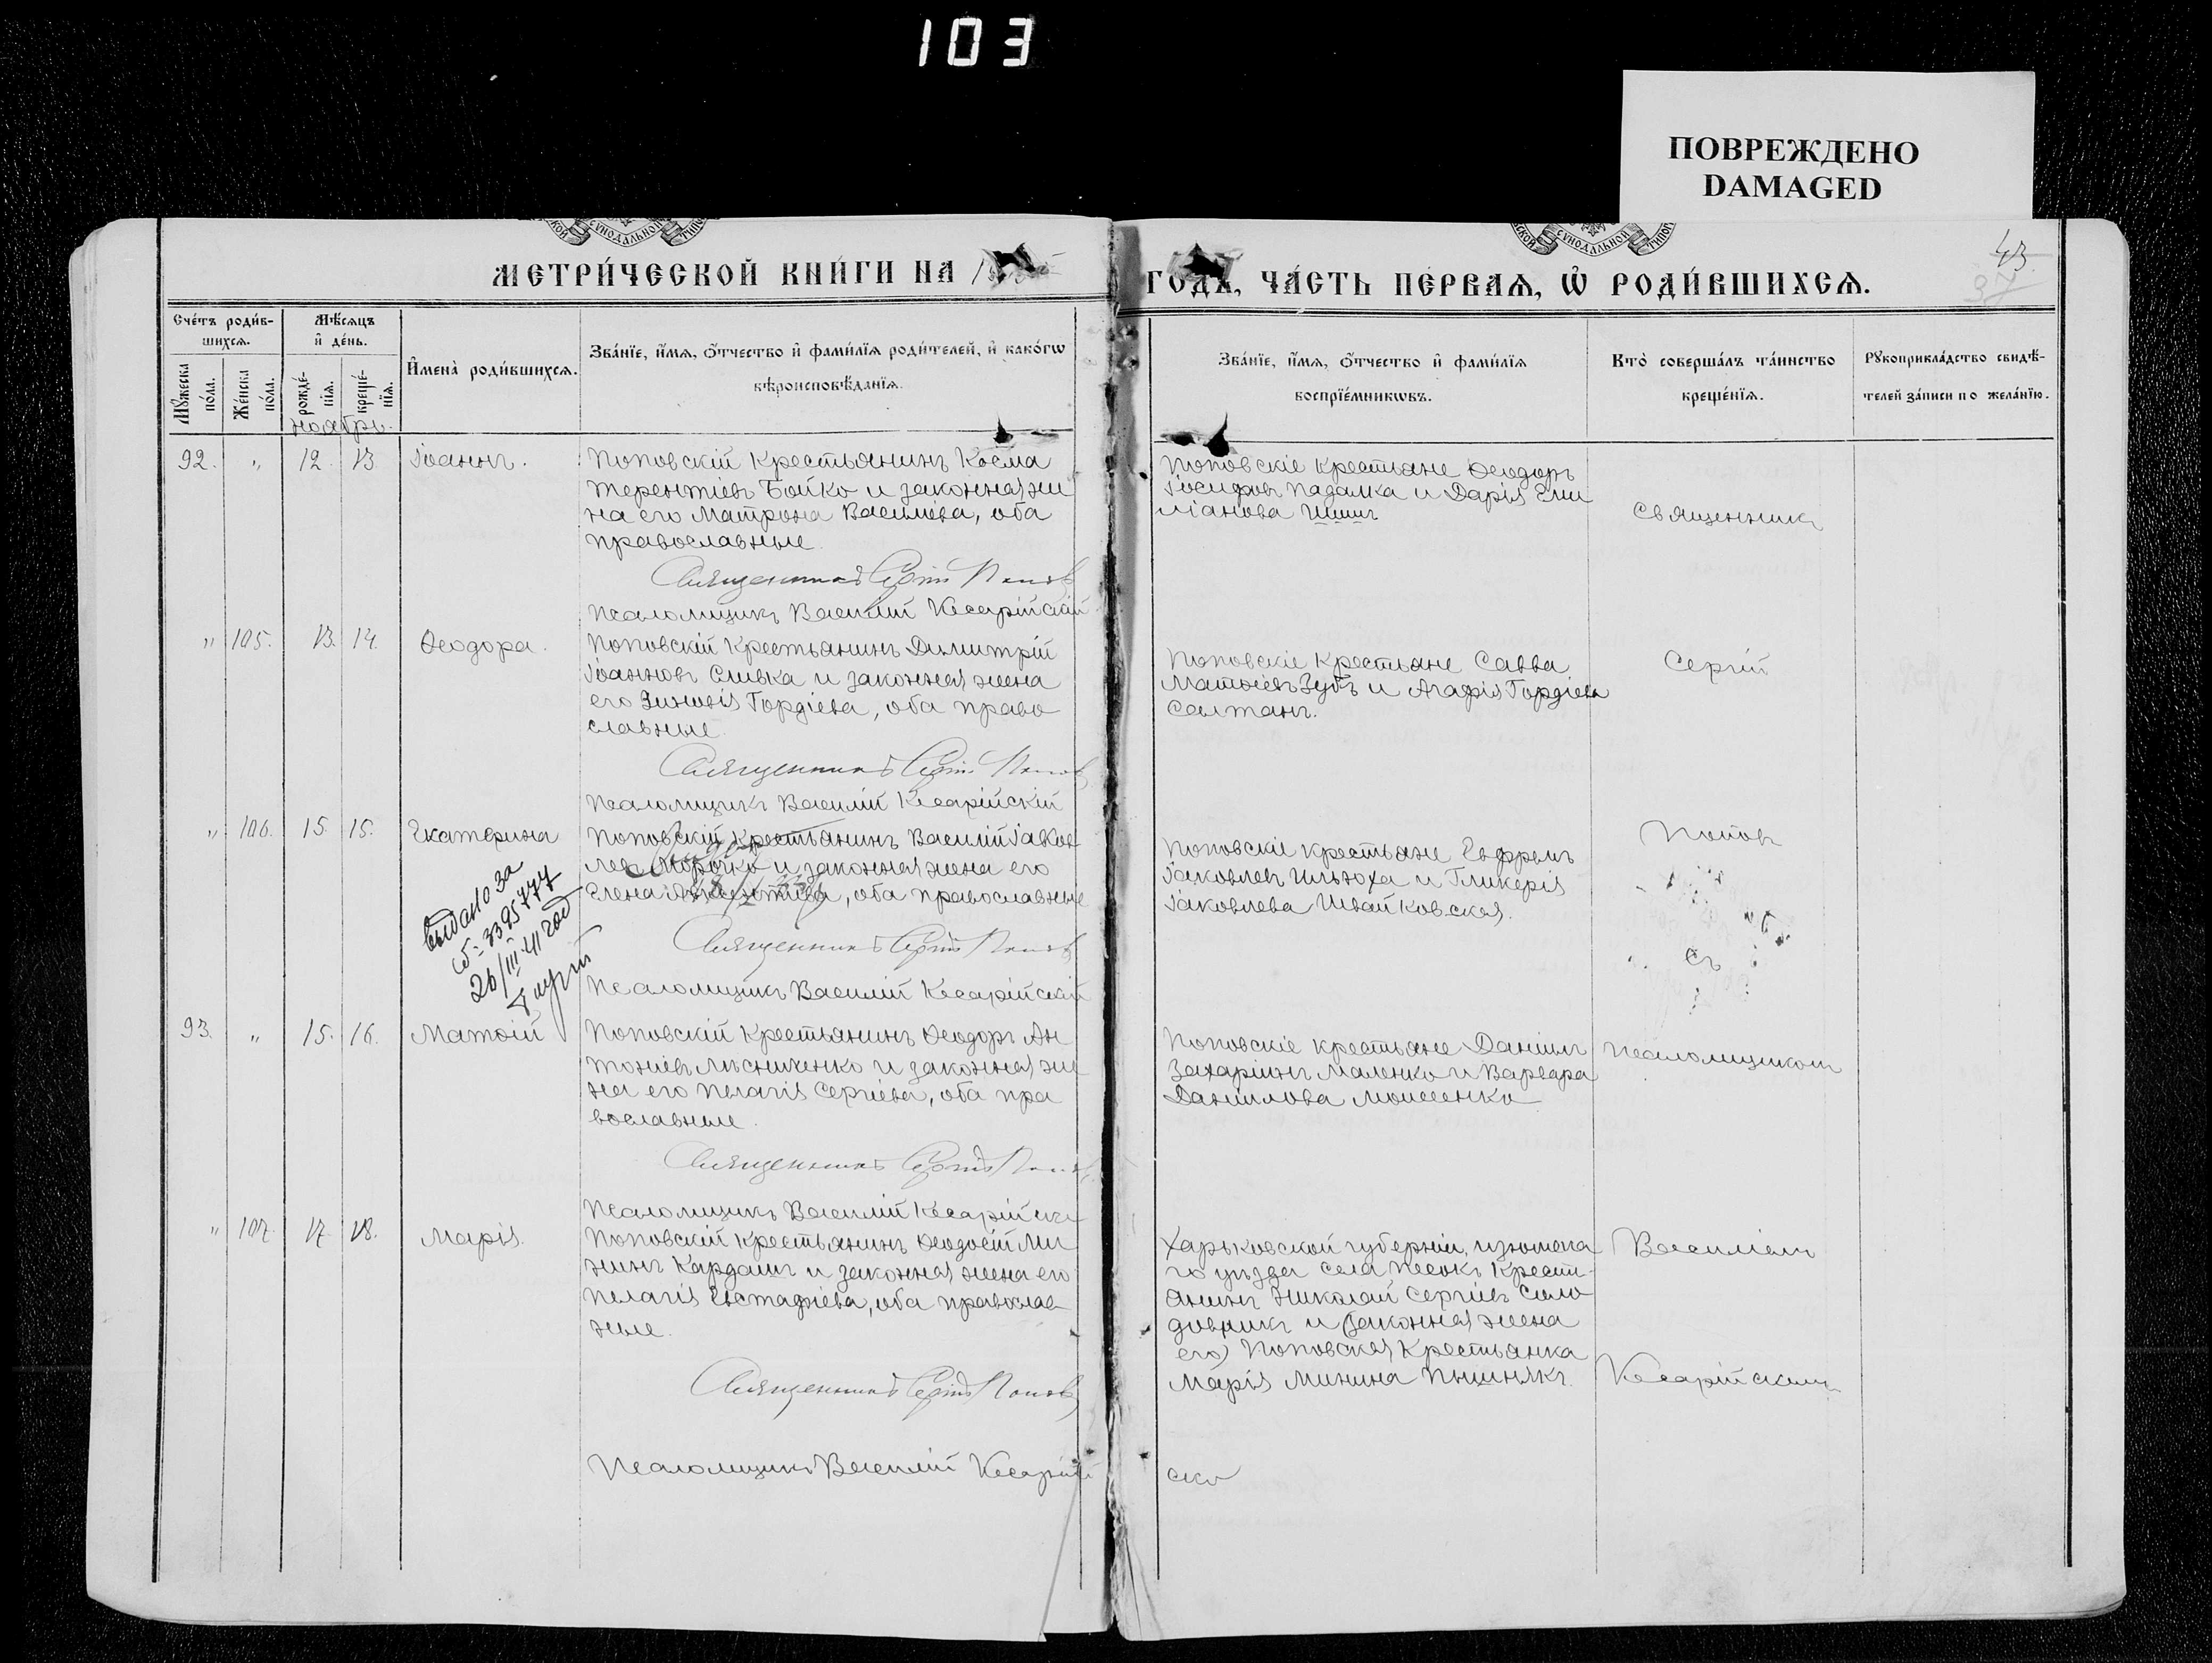 103
ПОВРЕЖДЕНО
DAMAGED
МЕТРИ́ЧЕСКОЙ КНИ́ГИ НА
ГОДЪ, ЧА́СТЬ ПЕ́РВАЯ, Ѡ РОДИ́ВШИХСЯ.
43
37
Сче́тъ роди́в-
шихся.
Мѣ́сяцъ
и де́нь.
Мꙋ́жеска
по́ла.
Же́нска
по́ла.
рожде́-
нїя.
креще́-
нїя.
Имена̀ роди́вшихся.
Зва́нїе, и́мя, ѻ́тчество и фами́лїя роди́телей, и како́гѡ
вѣроисповѣ́данїя.
Зва́нїе, и́мя, ѻ́тчество и фами́лїя
воспрїе́мникѡвъ.
Кто̀ соверша́лъ та́инство
креще́нїя.
Рꙋкоприкла́дство свидѣ́-
телей за́писи по жела́нїю.
ноябрь.
92. " 12. 13. Іоаннъ.
Поповскій крестьянинъ Косма
Терентіевъ Бойко и законная же
на его Матрона Васильева, оба
православные.
Священникъ Сергій Поповъ
Псаломщикъ Василій Кесарійскій
Поповскіе крестьяне Ѳеодоръ
Іосифовъ Падалка и Дарія Еми
ліанова
Священникъ
" 105. 13. 14. Ѳеодора.
Поповскій крестьянинъ Димитрій
Іоанновъ Сливка и законная жена
его Зиновія Гордіева, оба право
славные.
Священникъ Сергій Поповъ
Псаломщикъ Василій Кесарійскій
Поповскіе крестьяне Савва
Матѳіевъ Зубъ и Агафія Гордіева
Салтанъ.
Сергій
" 106. 15. 15. Екатерина
Поповскій крестьянинъ Василій Іаков
левъ и законная жена его
Елена оба православные
Священникъ Сергій Поповъ
Псаломщикъ Василій Кесарійскій
выдано за
3395777
26/III-41 год
Поповскіе крестьяне Ефремъ
Іаковлевъ Ильюха и Гликерія
Іаковлева Швайковская.
Поповъ
съ
93. " 15. 16. Матѳій
Поповскій крестьянинъ Ѳеодоръ Ан
тоніевъ Лѣсниченко и законная же
на его Пелагія Сергіева, оба пра
вославные.
Священникъ Сергій Поповъ
Псаломщикъ Василій Кесарійскій
Поповскіе крестьяне Даніилъ
Захаріинъ Маленко и Варвара
Даніилова Моисеенко
псаломщикомъ
" 107. 17. 18. Марія.
Поповскій крестьянинъ Ѳеодосій Ми
нинъ Кардашъ и законная жена его
Пелагія Евстафіева, оба православ
ные.
Священникъ Сергій Поповъ
Псаломщикъ Василій Кесарій
скій
Харьковской губерніи, изюмска
го уѣзда села Песокъ крестья
янинъ Николай Сергіевъ Соло
довникъ и (законная жена
его) Поповская крестьянка
Марія Минина
Василіемъ
Кесарійскимъ